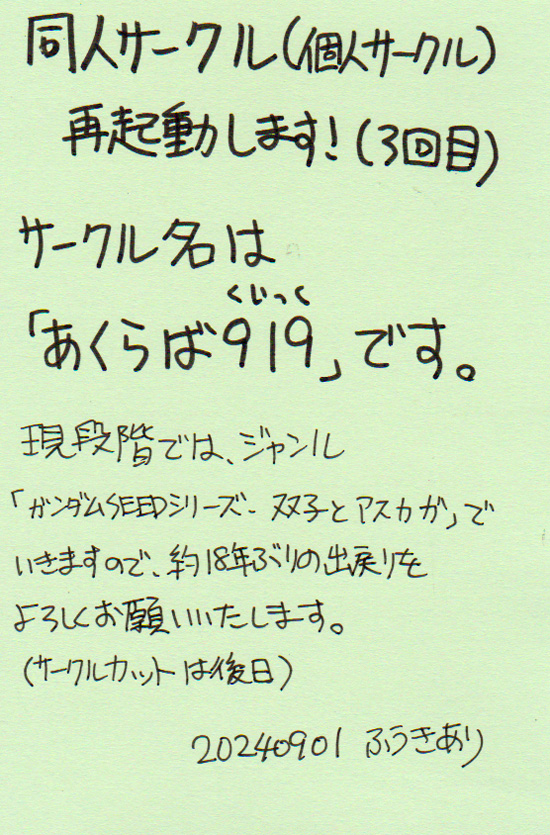 同人サークル(個人サークル)
再起動します!(3回目)
サークル名は
くじっく
「あくらば919」です。
現段階では、ジャンル
「ガンダムSEEDシリーズ- 双子とアスカが」で
いきますので、約18年ぶりの出戻りを
よろしくお願いいたします。
(サークルカットは後日)
20240901 ふうきあり